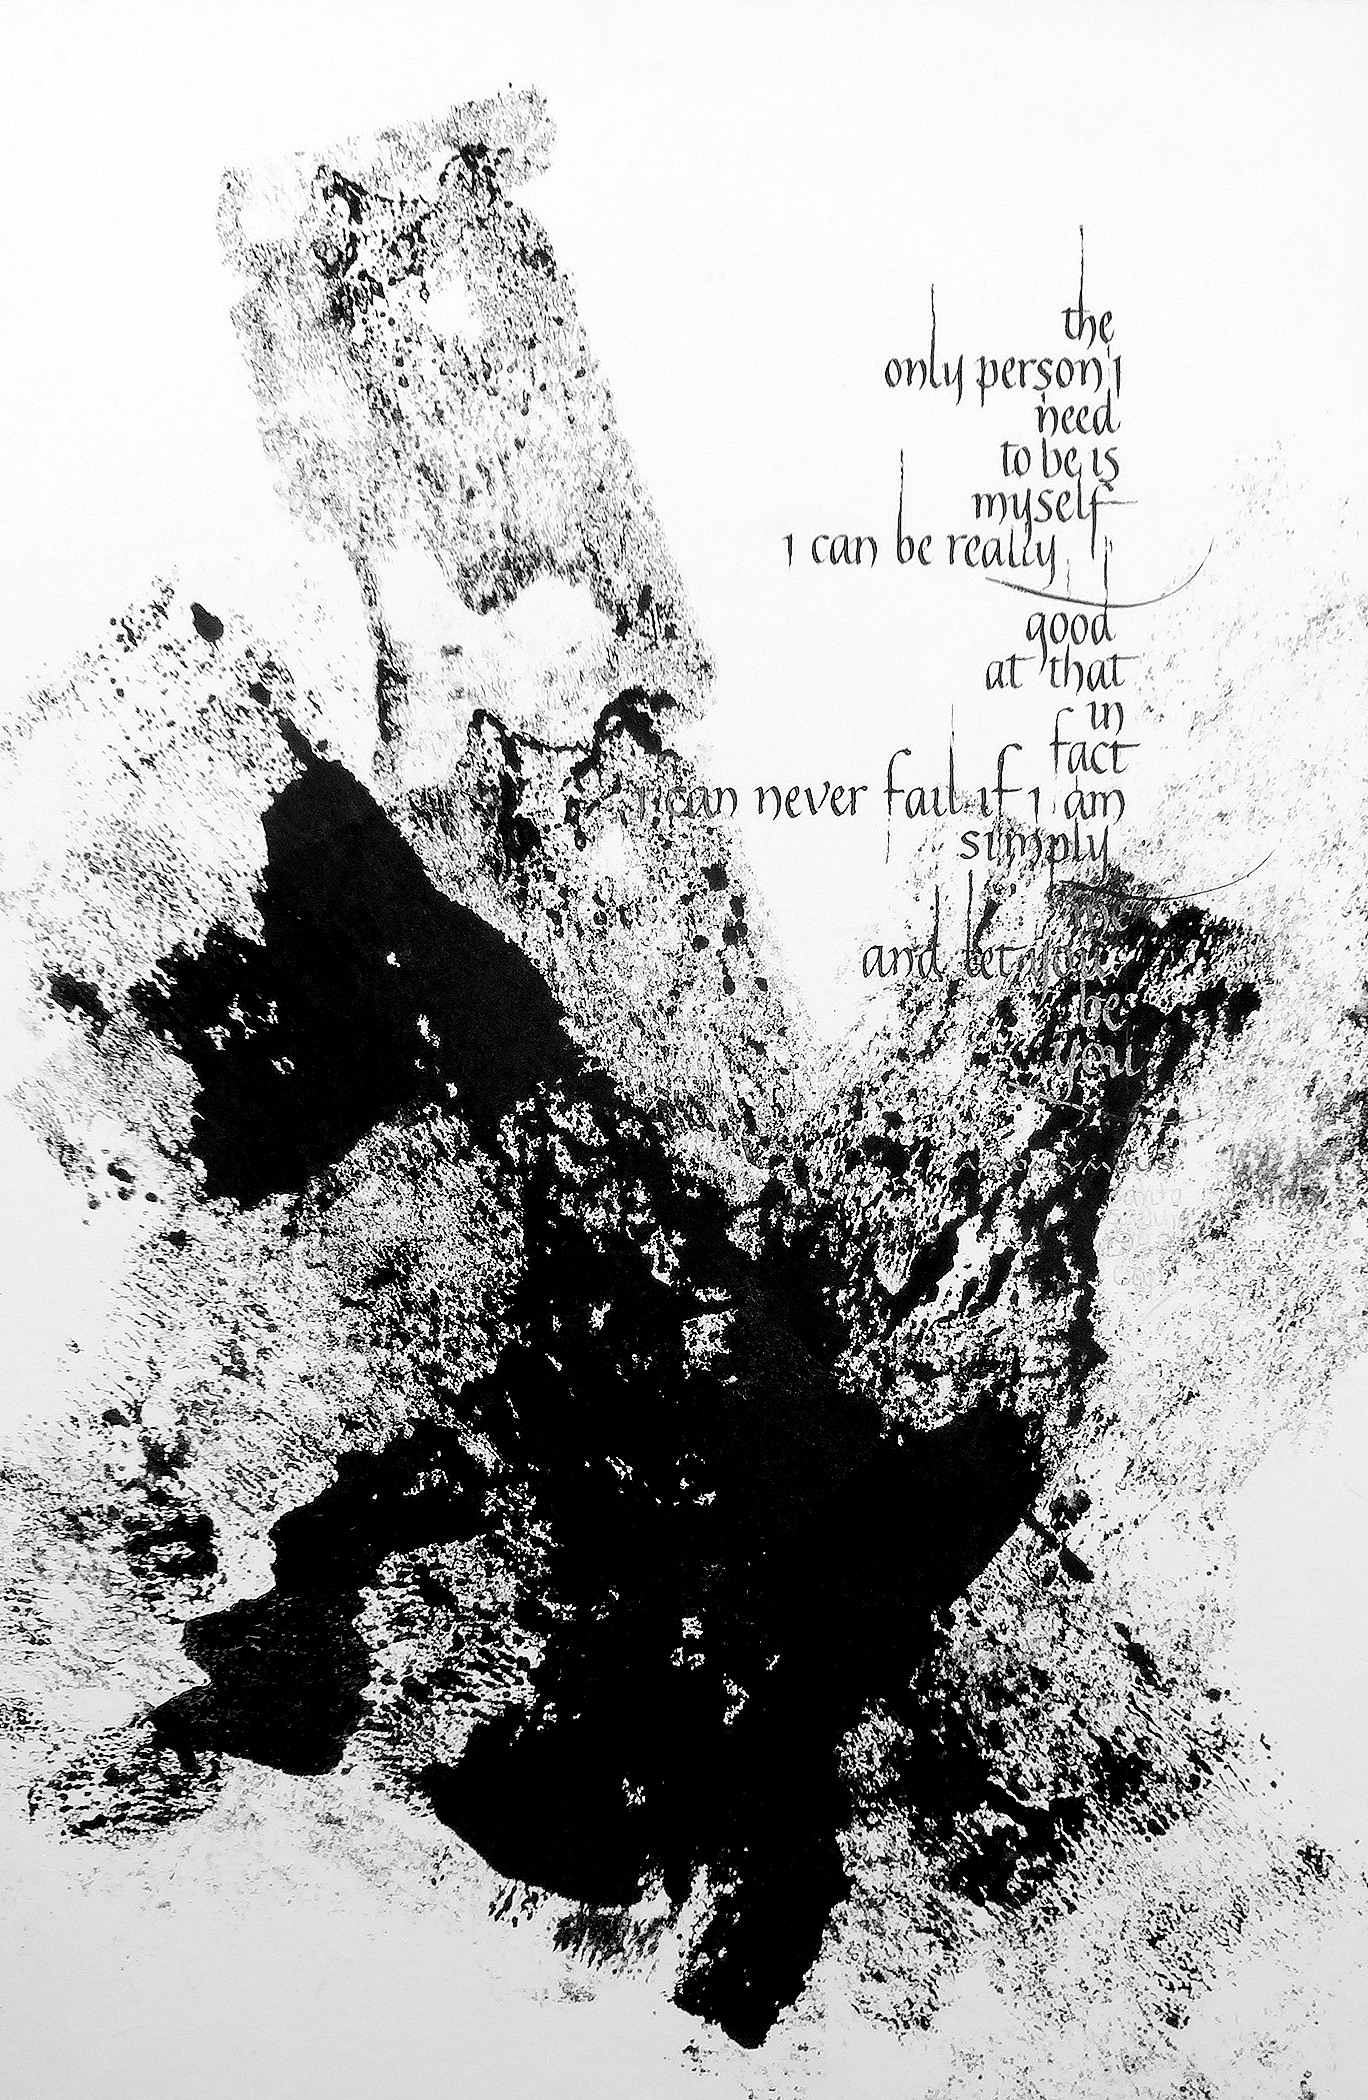 the
only person i
need
to be is
myself
i can be really
good
at that
in
fact
i can never fail if i am
simply
me
and let you
be
you
anonymous